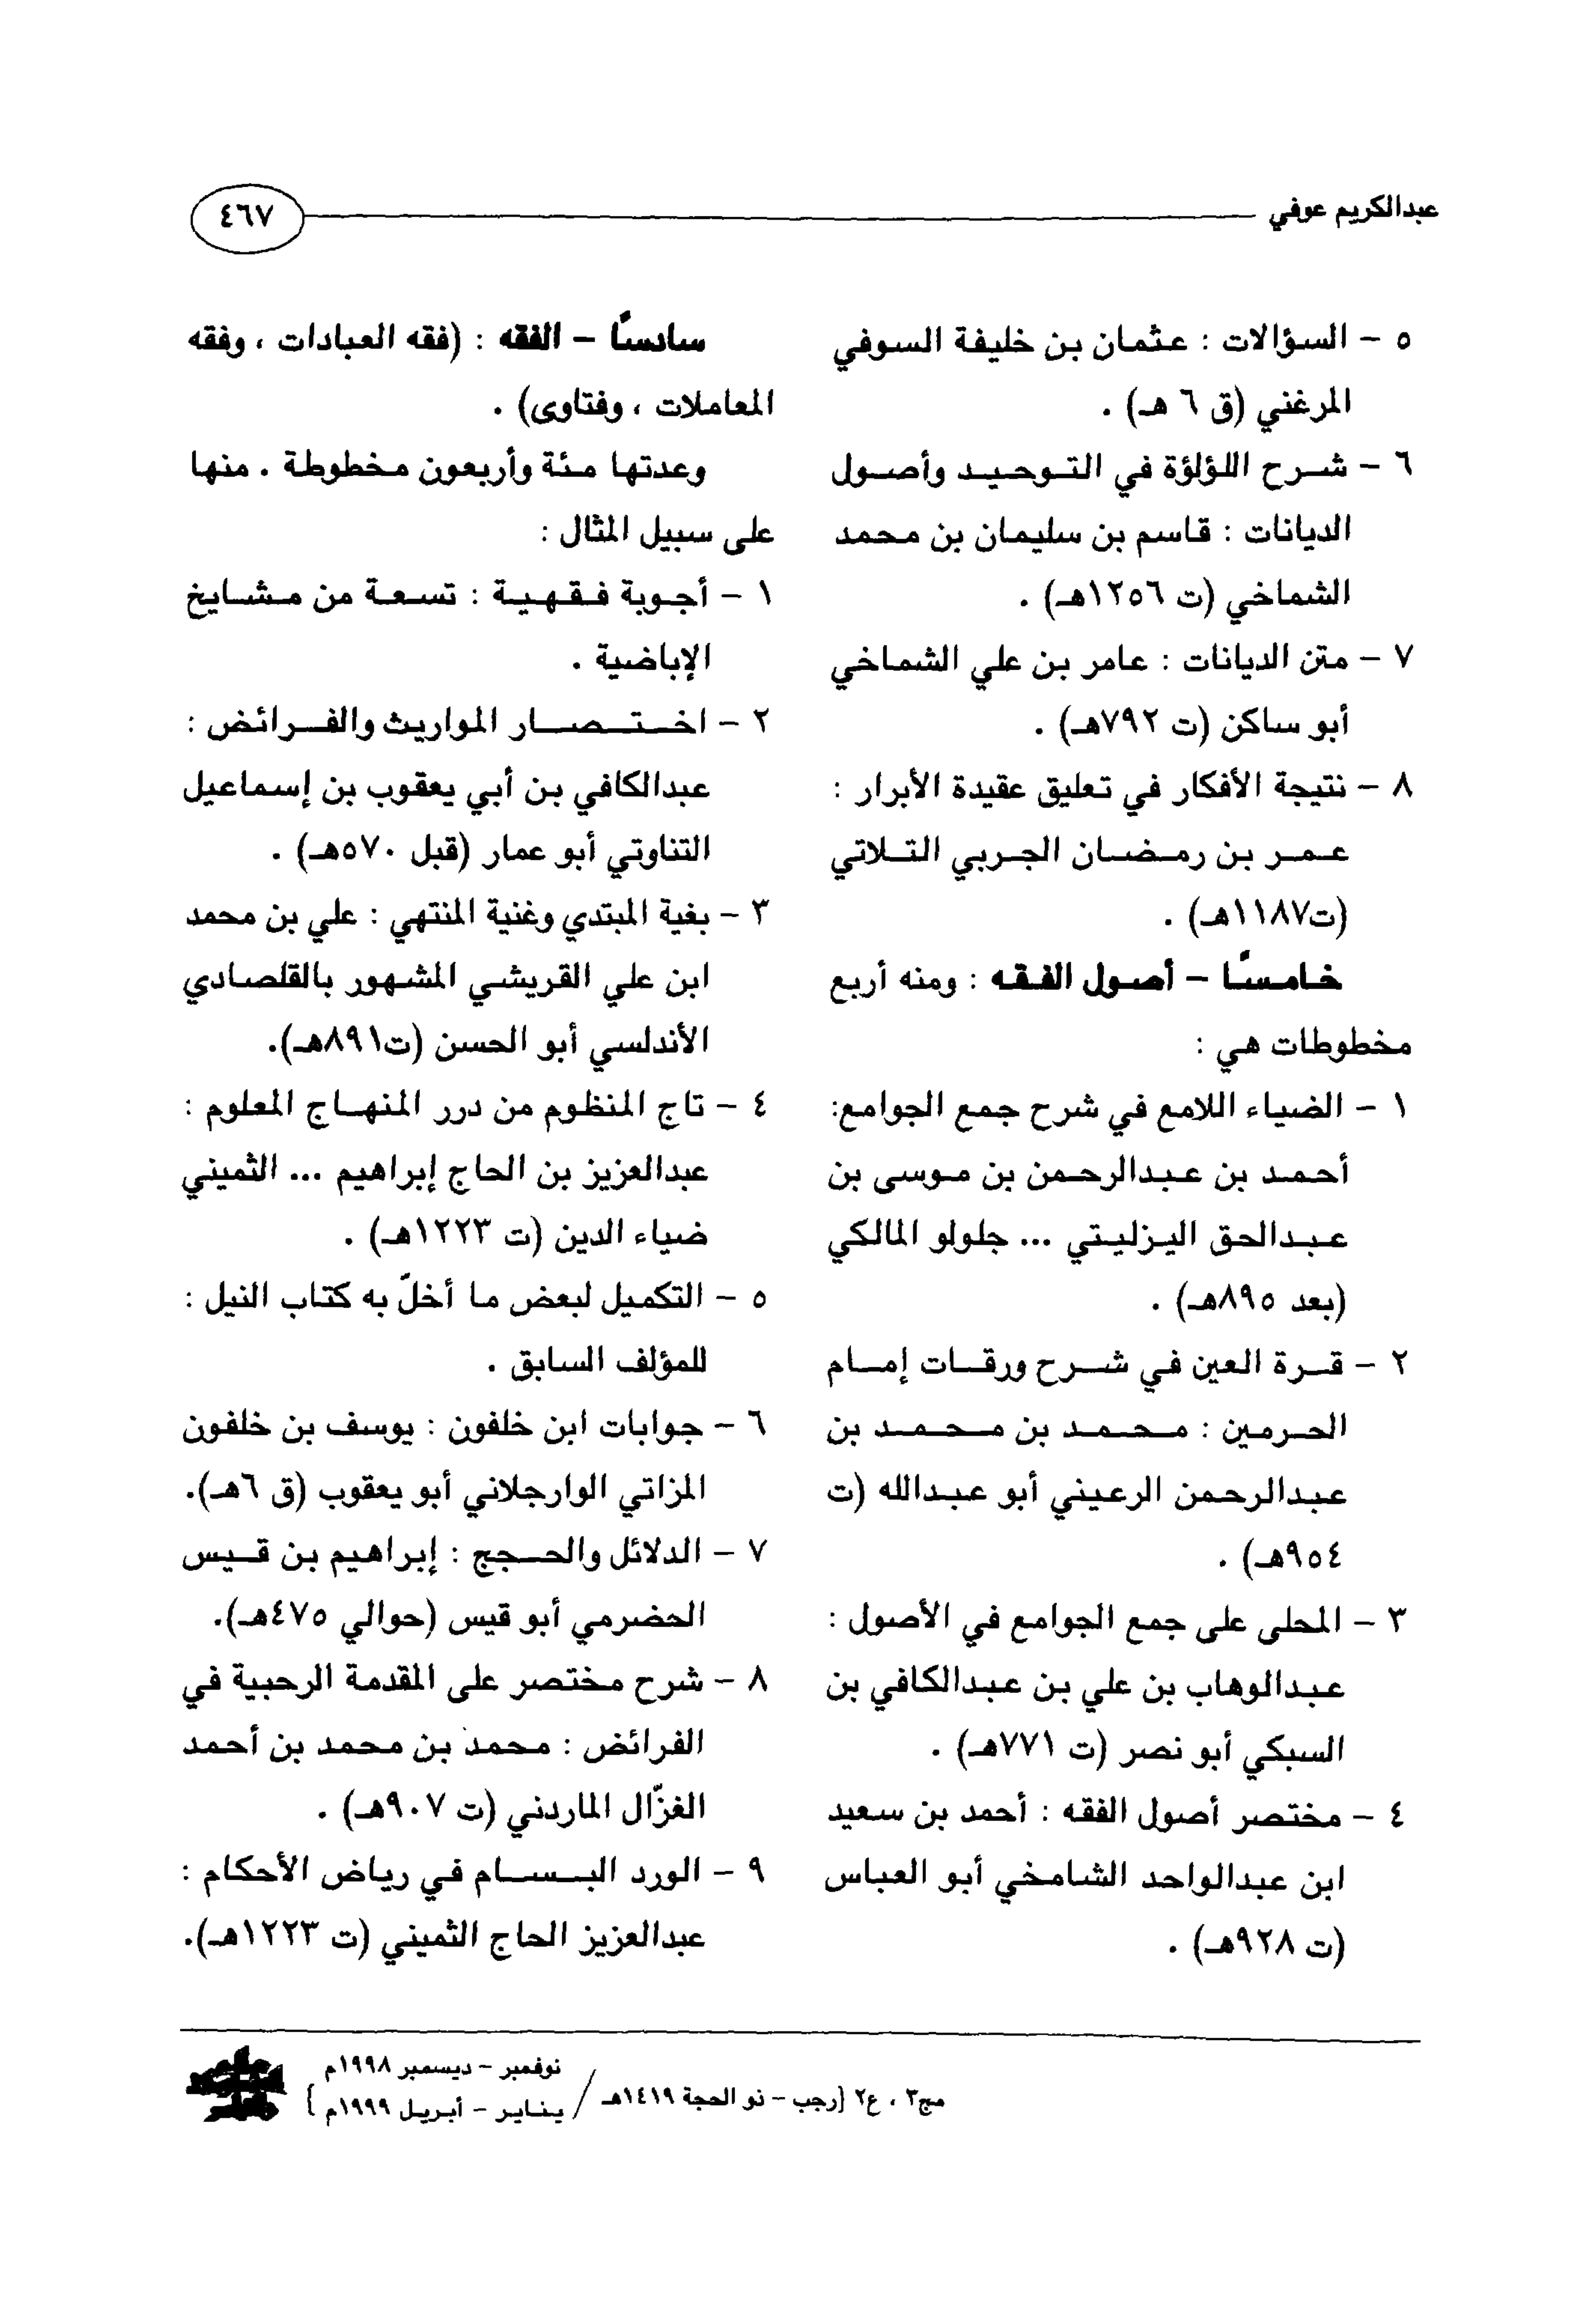 عبدالكريم عوفي
٤٦٧
٥ - السؤالات : عثمان بن خليفة السوفي
المرغني (ق ٦ هـ) .
٦ - شرح اللؤلؤة في التوحيد وأصول
الديانات : قاسم بن سليمان بن محمد
الشماخي (ت ١٢٥٦هـ) .
٧ - متن الديانات : عامر بن علي الشماخي
أبو ساكن (ت ٧٩٢هـ) .
٨ - نتيجة الأفكار في تعليق عقيدة الأبرار :
عمر بن رمضان الجربي التلاتي
(ت١١٨٧هـ) .
خامسًا - أصول الفقه : ومنه أربع
مخطوطات هي :
١ - الضياء اللامع في شرح جمع الجوامع:
أحمد بن عبدالرحمن بن موسى بن
عبدالحق اليزليتي ... جلولو المالكي
(بعد ٨٩٥هـ) .
٢ - قرة العين في شرح ورقات إمام
الحرمين : محمد بن محمد بن
عبدالرحمن الرعيني أبو عبدالله (ت
٩٥٤هـ) .
٣ - المحلى على جمع الجوامع في الأصول :
عبدالوهاب بن علي بن عبدالكافي بن
السبكي أبو نصر (ت ٧٧١هـ) .
٤ - مختصر أصول الفقه : أحمد بن سعيد
ابن عبدالواحد الشامخي أبو العباس
(ت ٩٢٨هـ) .
سادسًا - الفقه : (فقه العبادات ، وفقه
المعاملات ، وفتاوى) .
وعدتها مئة وأربعون مخطوطة . منها
على سبيل المثال :
١ - أجوبة فقهية : تسعة من مشايخ
الإباضية .
٢ - اختصار المواريث والفرائض :
عبدالكافي بن أبي يعقوب بن إسماعيل
التناوتي أبو عمار (قبل ٥٧٠هـ) .
٣ - بغية المبتدي وغنية المنتهي : علي بن محمد
ابن علي القريشي المشهور بالقلصادي
الأندلسي أبو الحسن (ت٨٩١هـ).
٤ - تاج المنظوم من درر المنهاج المعلوم :
عبدالعزيز بن الحاج إبراهيم ... الثميني
ضياء الدين (ت ١٢٢٣هـ) .
٥ - التكميل لبعض ما أخلّ به كتاب النيل :
للمؤلف السابق .
٦ - جوابات ابن خلفون : يوسف بن خلفون
المزاتي الوارجلاني أبو يعقوب (ق ٦هـ).
٧ - الدلائل والحجج : إبراهيم بن قيس
الحضرمي أبو قيس (حوالي ٤٧٥هـ).
٨ - شرح مختصر على المقدمة الرحبية في
الفرائض : محمد بن محمد بن أحمد
الغزّال الماردني (ت ٩٠٧هـ) .
٩ - الورد البسام في رياض الأحكام :
عبدالعزيز الحاج الثميني (ت ١٢٢٣هـ).
مج٣ ، ع٢ [رجب - ذو الحجة ١٤١٩هـ /
نوفمبر - ديسمبر ١٩٩٨م
يناير - أبريل ١٩٩٩م ]